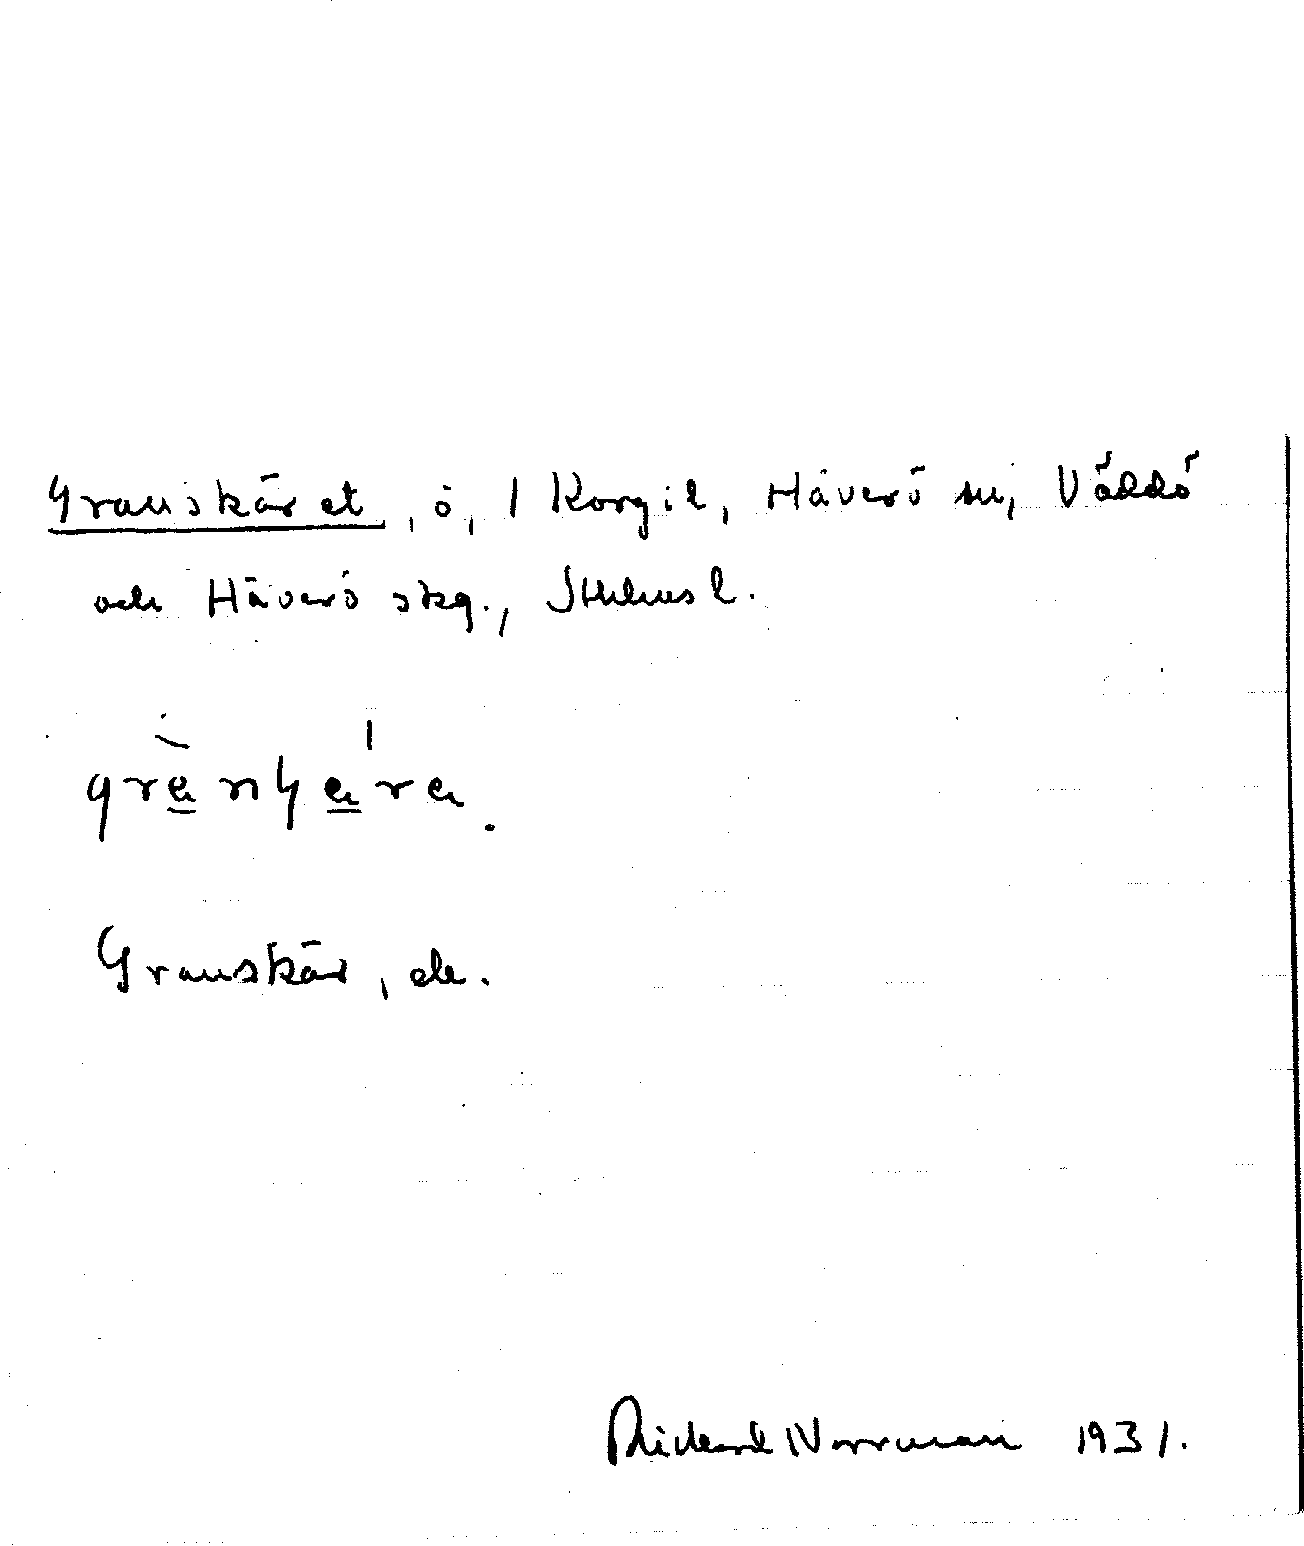 Granskäret, ö, 1 Korgil, Häverö sn, Väddö
och Häverö skg., Sthlms l.
Granskär, ek.
Rickard Norrman 1931.